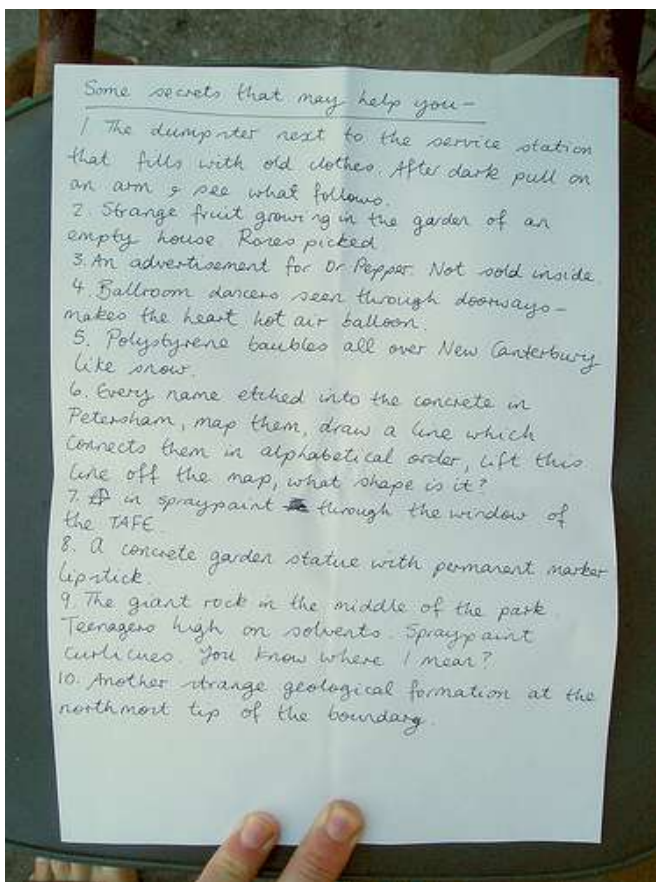 Some secrets that may help you-
1 The dumpster next to the service station
that fills with old clothes. After dark pull on
an arm & see what follows.
2. Strange fruit growing in the garden of an
empty house. Roses picked
3. An advertisement for Dr Pepper. Not sold inside.
4. Ballroom dancers seen through doorways-
makes the heart hot air balloon.
5. Polystyrene baubles all over New Canterbury
like snow.
6. Every name etched into the concrete in
Petersham, map them, draw a line which
connects them in alphabetical order, lift this
line off the map, what shape is it?
7. in spraypaint through the window of
the TAFE.
8. A concrete garden statue with permanent marker
lipstick.
9. The giant rock in the middle of the park.
Teenagers high on solvents. Spraypaint
curlicues. You know where I mean?
10. Another strange geological formation at the
northmost tip of the boundary.